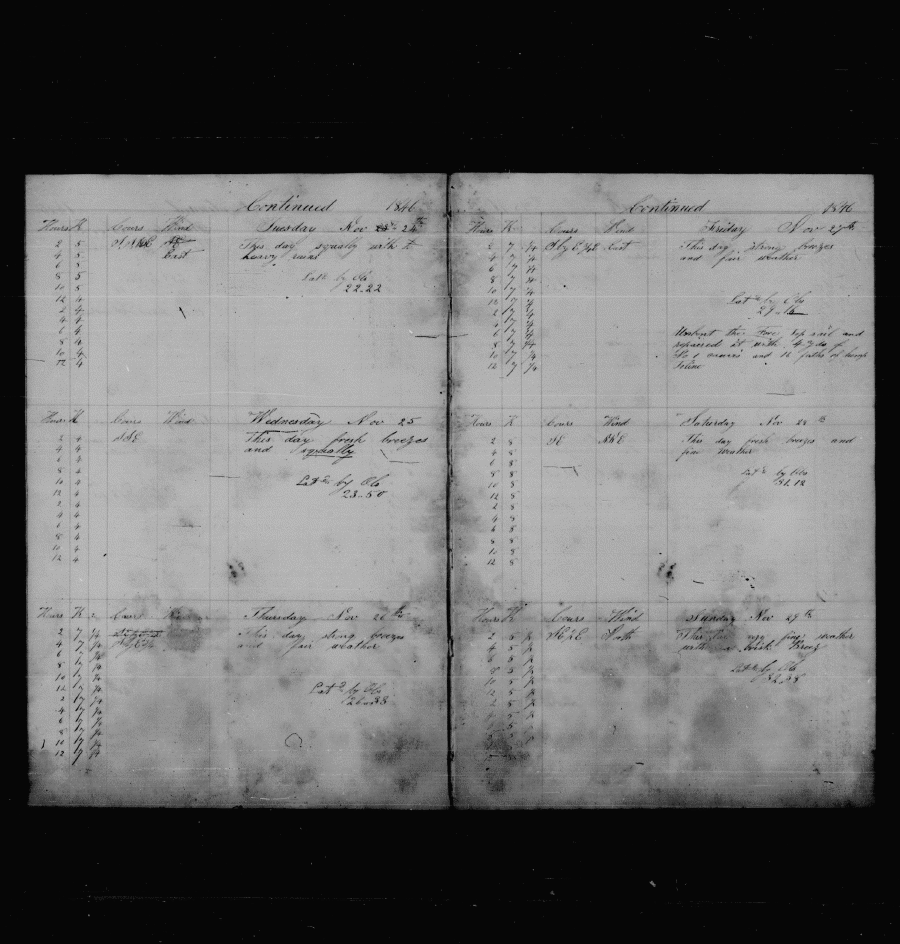 Continued 1846
Hours K Cours Wind Tuesday Nov 24th
2 5 This day squally with
4 5 East heavy rain
6 5
8 5 Lat by Ob
10 5 22-22
12 4
2 4
4 4
6 4
8 4
10 4
12 4
Hours K Cours Wind Wednesday Nov 25
2 4 SSE This day fresh breezes
4 4 and squally
6 4
8 4
10 4 Lat by Ob
12 4 23-50
2 4
4 4
6 4
8 4
10 4
12 4
Hours K Cours Thursday Nov 26th
2 7 ½ This day strong breezes
4 7 ½ and fair weather
6 7 ½
8 7 ½
10 7 ½
12 7 ½ Lat d by Ob
2 7 ½ 26-33
4 7 ½
6 7 ½
8 7 ½
10 7 ½
12 7 ½
Continued 1846
Hours K Cours Wind Friday Nov 27th
2 7 ½ S by E ½ E East This day strong breezes
4 7 ½ and fair weather
6 7 ½
8 7 ½
10 7 ½
12 7 ½ Lat d by Ob
2 7 ½
4 7 ½
6 7 ½ Unbent the Fore top sail and
8 7 ½ repaired it with 4 yds of
10 7 ½ canvas and 12 faths of
12 7 ½
Hours K Cours Wind Saturday Nov 28th
2 8 SE NNE This day fresh breezes and
4 8 fine weather
6 8
8 8 Lat d by Ob
10 8 31.12
12 8
2 8
4 8
6 8
8 8
10 8
12 8
Hours K Cours Wind Sunday Nov 29th
2 5 ½ fine weather
4 5 ½ with a Brisk Breez
6 5 ½
8 5 ½ Lat by Ob
10 5 ½
12 5 ½
2 5 ½
4 5 ½